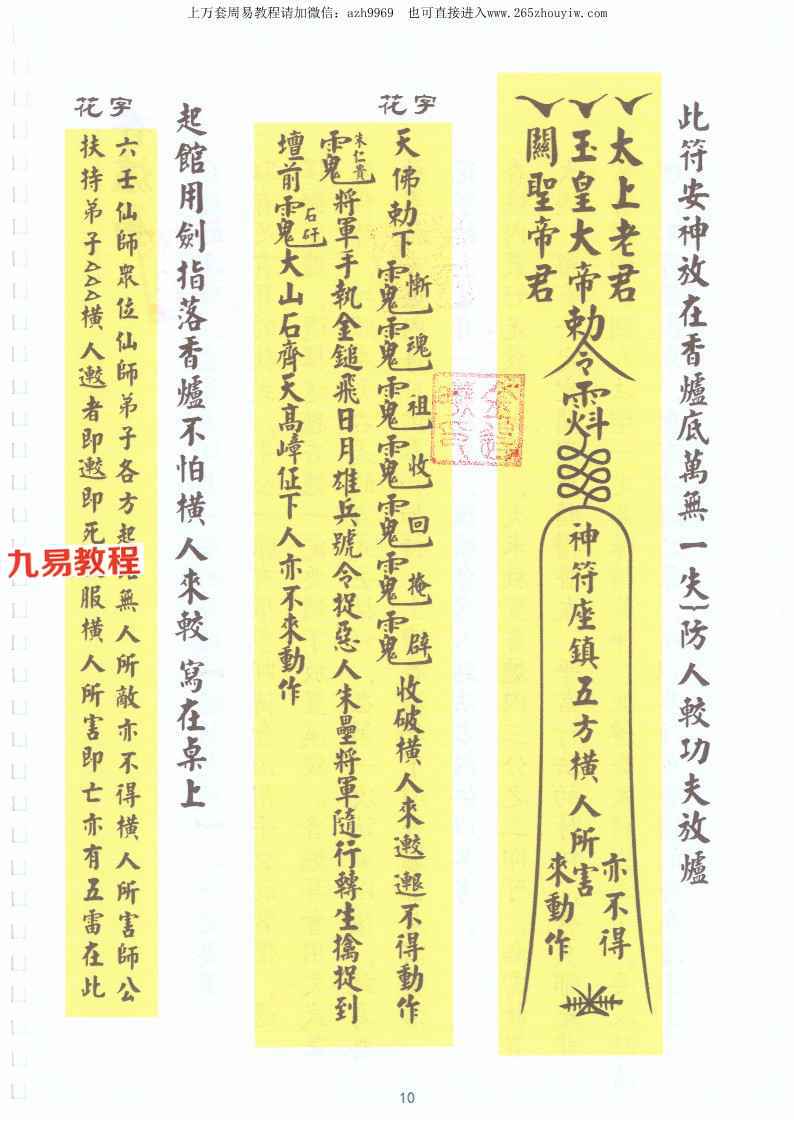 上万套周易教程请加微信：azh9969 也可直接进入www.265zhouyiw.com
此符安神放在香爐底萬無一失防人較功夫放爐
太上老君
玉皇大帝
關聖帝君
勅令
神符座鎮五方橫人所害
亦不得
來動作
花字
天佛勅下
慚
魂
祖
收
回
掩
辟
收破橫人來
不得動作
朱仁貴
將軍手執金鎚飛日月雄兵號令捉惡人朱壘將軍隨行轉生擒捉到
壇前
石矸
大山石齊天高嶂征下人亦不來動作
起館用劍指落香爐不怕橫人來較寫在桌上
花字
六壬仙師眾位仙師弟子各方起
無人所敵亦不得橫人所害師公
扶持弟子△△△橫人
者即
即死
服橫人所害即亡亦有五雷在此
九易教程
10